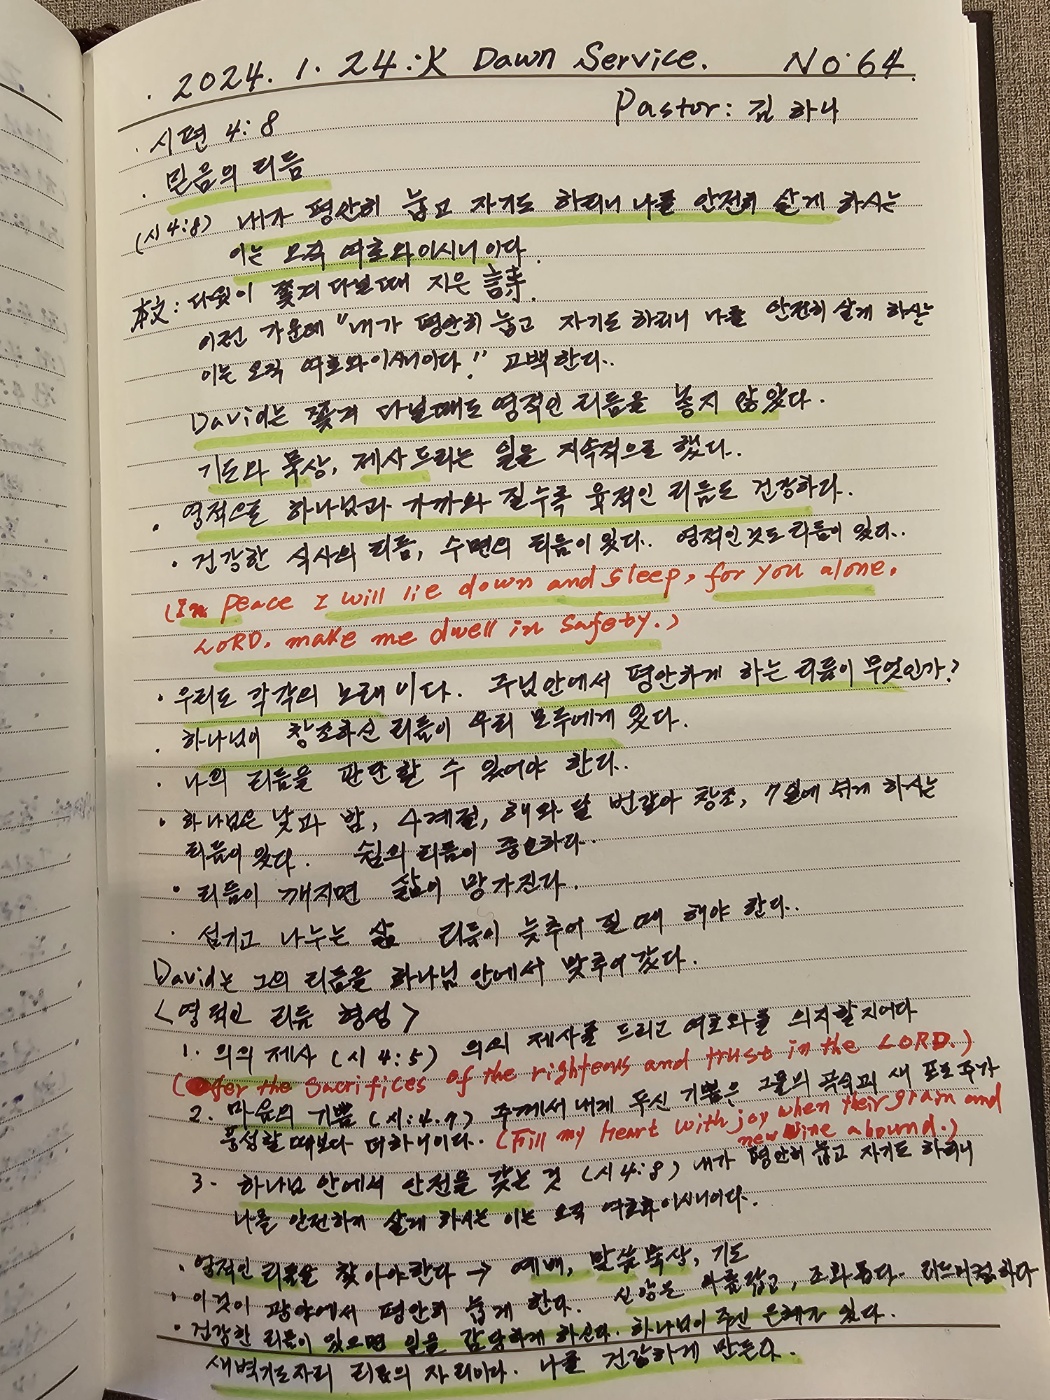 . 2024. 1. 24.:火 Dawn Service. No:64.
Pastor: 김 하나
. 시편 4:8
. 믿음의 리듬
(시4:8) 내가 평안히 눕고 자기도 하리니 나를 안전히 살게 하시는
이는 오직 여호와이시니이다.
本文: 다윗이 쫓겨 다닐때 지은 詩.
이런 가운데 "내가 평안히 눕고 자기도 하리니 나를 안전히 살게 하시는
이는 오직 여호와이시니이다!" 고백한다..
David는 쫓겨 다닐때도 영적인 리듬을 놓지 않았다.
기도와 묵상, 제사 드리는 일을 지속적으로 했다.
• 영적으로 하나님과 가까와 질수록 육적인 리듬도 건강하다.
• 건강한 식사의 리듬, 수면의 리듬이 있다.. 영적인것도 리듬이 있다..
(In peace I will lie down and sleep, for you alone,
LORD. make me dwell in safety.)
• 우리도 각각의 노래이다. 주님안에서 평안하게 하는 리듬이 무엇인가?
. 하나님이 창조하신 리듬이 우리 모두에게 있다.
• 나의 리듬을 판단할 수 있어야 한다..
• 하나님은 낮과 밤, 4계절, 해와 달 번갈아 창조, 7일에 쉬게 하시는
리듬이 있다. 쉼의 리듬이 중요하다..
• 리듬이 깨지면 삶이 망가진다.
. 섬기고 나누는 삶 리듬이 늦추어 질 때 해야 한다..
David는 그의 리듬을 하나님 안에서 맞추어 갔다.
<영적인 리듬 형성>
1. 의의 제사 (시 4:5) 의의 제사를 드리고 여호와를 의지할지어다
(fer the sacrifices of the righteous and trust in the LORD.)
2. 마음의 기쁨 (시:4.7) 주께서 내게 두신 기쁨은 그들의 곡식과 새 포도주가
풍성할 때보다 더하니이다. (Fill my heart with joy when their grain and
new wine abound.)
3. 하나님 안에서 안전을 갖는 것 (시4:8) 내가 평안히 눕고 자기도 하리니
나를 안전하게 살게 하시는 이는 오직 여호와이시니이다.
. 영적인 리듬을 찾아야한다 → 예배, 말씀묵상, 기도
• 이것이 광야에서 평안히 눕게 한다. 신앙은 아름답고, 조화롭다.
• 건강한 리듬이 있으면 일을 감당하게 하신다. 하나님이 주신 은혜가 있다.
새벽기도자리 리듬의 자리이다. 나를 건강하게 만든다.